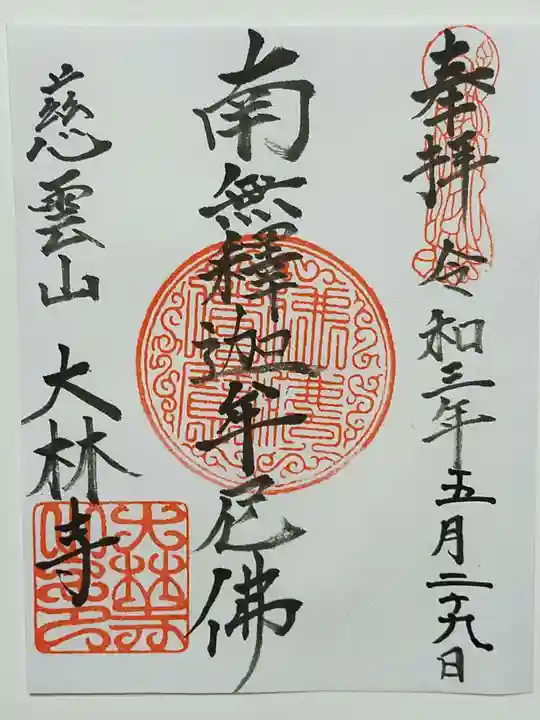 奉拝 令和三年五月二十九日
南無釋迦牟尼佛
慈雲山 大林寺